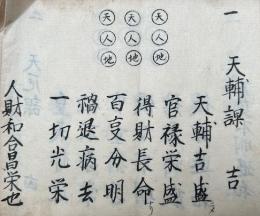 一 天輔課 吉
天天天
人人人
地地地
天輔吉盛
官禄栄盛
得財長命
百叓分明
禍退病去
一切光栄
人財和合昌栄也